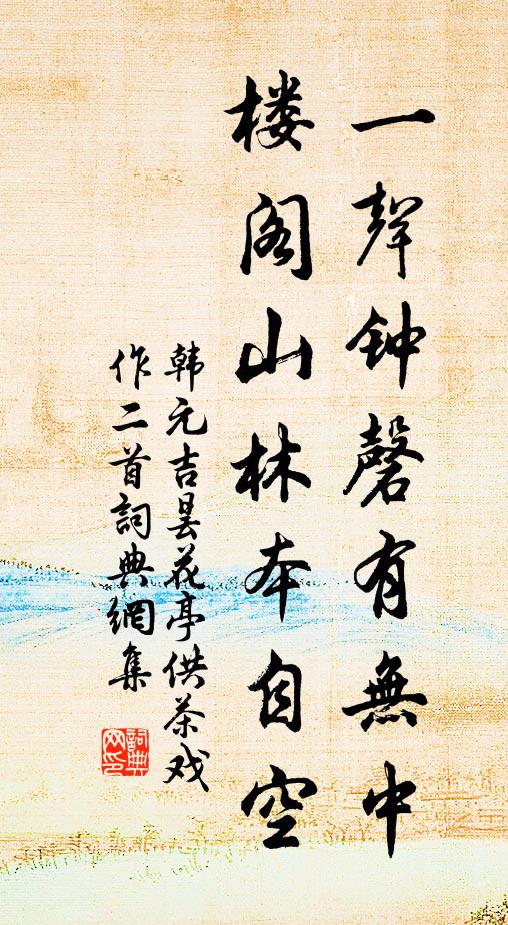 一聲钟磬有無中
楼阁山林本自空
韩元吉昙花亭供茶戏
作二首詞典網集
詞典
网印